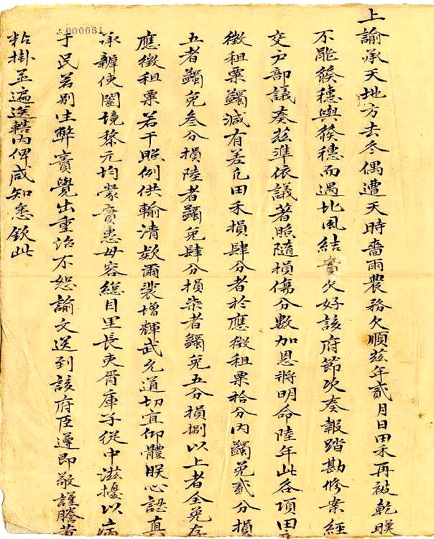 000081
上諭承天地方去冬偶遭天時嗇雨農務欠順茲年貳月日田禾再被乾暵
不能發穗與發穗而遇北風結實欠好該府節次奏報踏勘修案經
交户部議奏茲準依議著照隨損傷分數加恩將明命陸年此各項田
徵租粟蠲減有差凢田禾損肆分者於應徵租粟拾分內蠲免貳分損
五者蠲免叁分損陸者蠲免肆分損柒者蠲免五分損捌以上者全免存
應徵租粟若干照例供輸清款爾裴增輝武允道切宜仰體朕心認真
承辦使闔境黎元均蒙實惠毋容總目里長吏胥庫子從中滋擾以病
于民若別生弊竇覺出重治不恕諭文送到該府臣還即敬謹謄黃
粘掛並遍送轄內俾咸知悉欽此